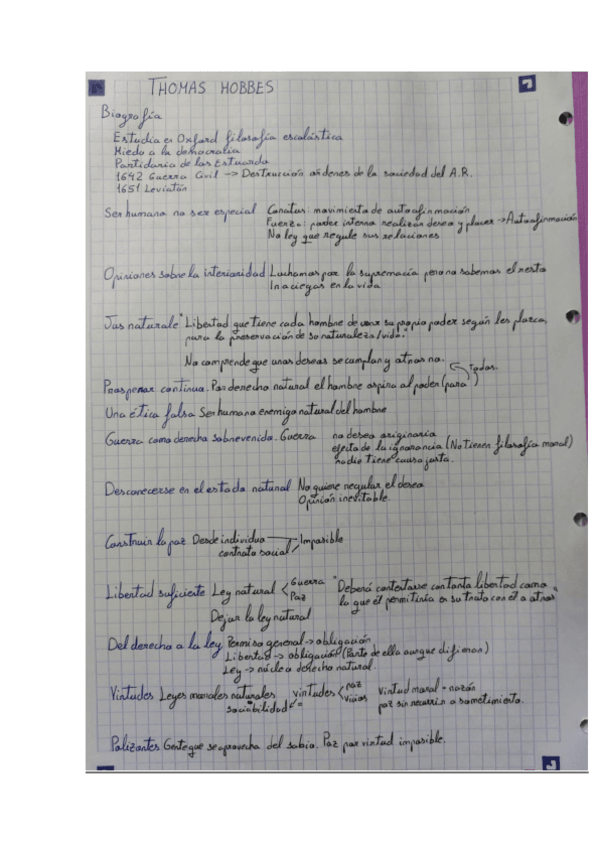 THOMAS HOBBES
Biografía
Estudia en Oxford filosofía escolástica
Miedo a la democracia
Partidario de los Estuardo
1642 Guerra Civil -> Destrucción órdenes de la sociedad del A.R.
1651 Leviatán
Ser humano no ser especial Conatus: movimiento de autoafirmación
Fuerza: poder interno realizar deseo y placer -> Autoafirmación
No ley que regule sus relaciones
Opiniones sobre la interioridad Luchamos por la supremacía pero no sabemos el resto
In a ciegas en la vida
Jus naturale "Libertad que tiene cada hombre de usar su propio poder según les plazca,
para la preservación de su naturaleza/vida."
No comprende que unos deseos se cumplan y otros no.
Todos.
Prosperar continuo. Por derecho natural el hombre aspira al poder (para )
Una ética falsa Ser humano enemigo natural del hombre
Guerra como derecho sobrevenido. Guerra no deseo originario
efecto de la ignorancia (No tienen filosofía moral)
nadie tiene causa justa.
Desconocerse en el estado natural No quiere regular el deseo
Opinión inevitable.
Construir la paz Desde individuo Imposible
contrato social
Libertad suficiente Ley natural < Guerra "Deberá contentarse con tanta libertad como
Paz la que él permitiría en su trato con él a otros"
Dejar la ley natural
Del derecho a la ley Permiso general -> obligación
Libertad -> obligación (Parte de ella aunque difieran)
Ley -> núcleo derecho natural.
Virtudes Leyes morales naturales virtudes < paz Virtud moral = razón
sociabilidad = vicios paz sin recurrir a sometimiento.
Polizontes Gente que se aprovecha del sabio. Paz por virtud imposible.